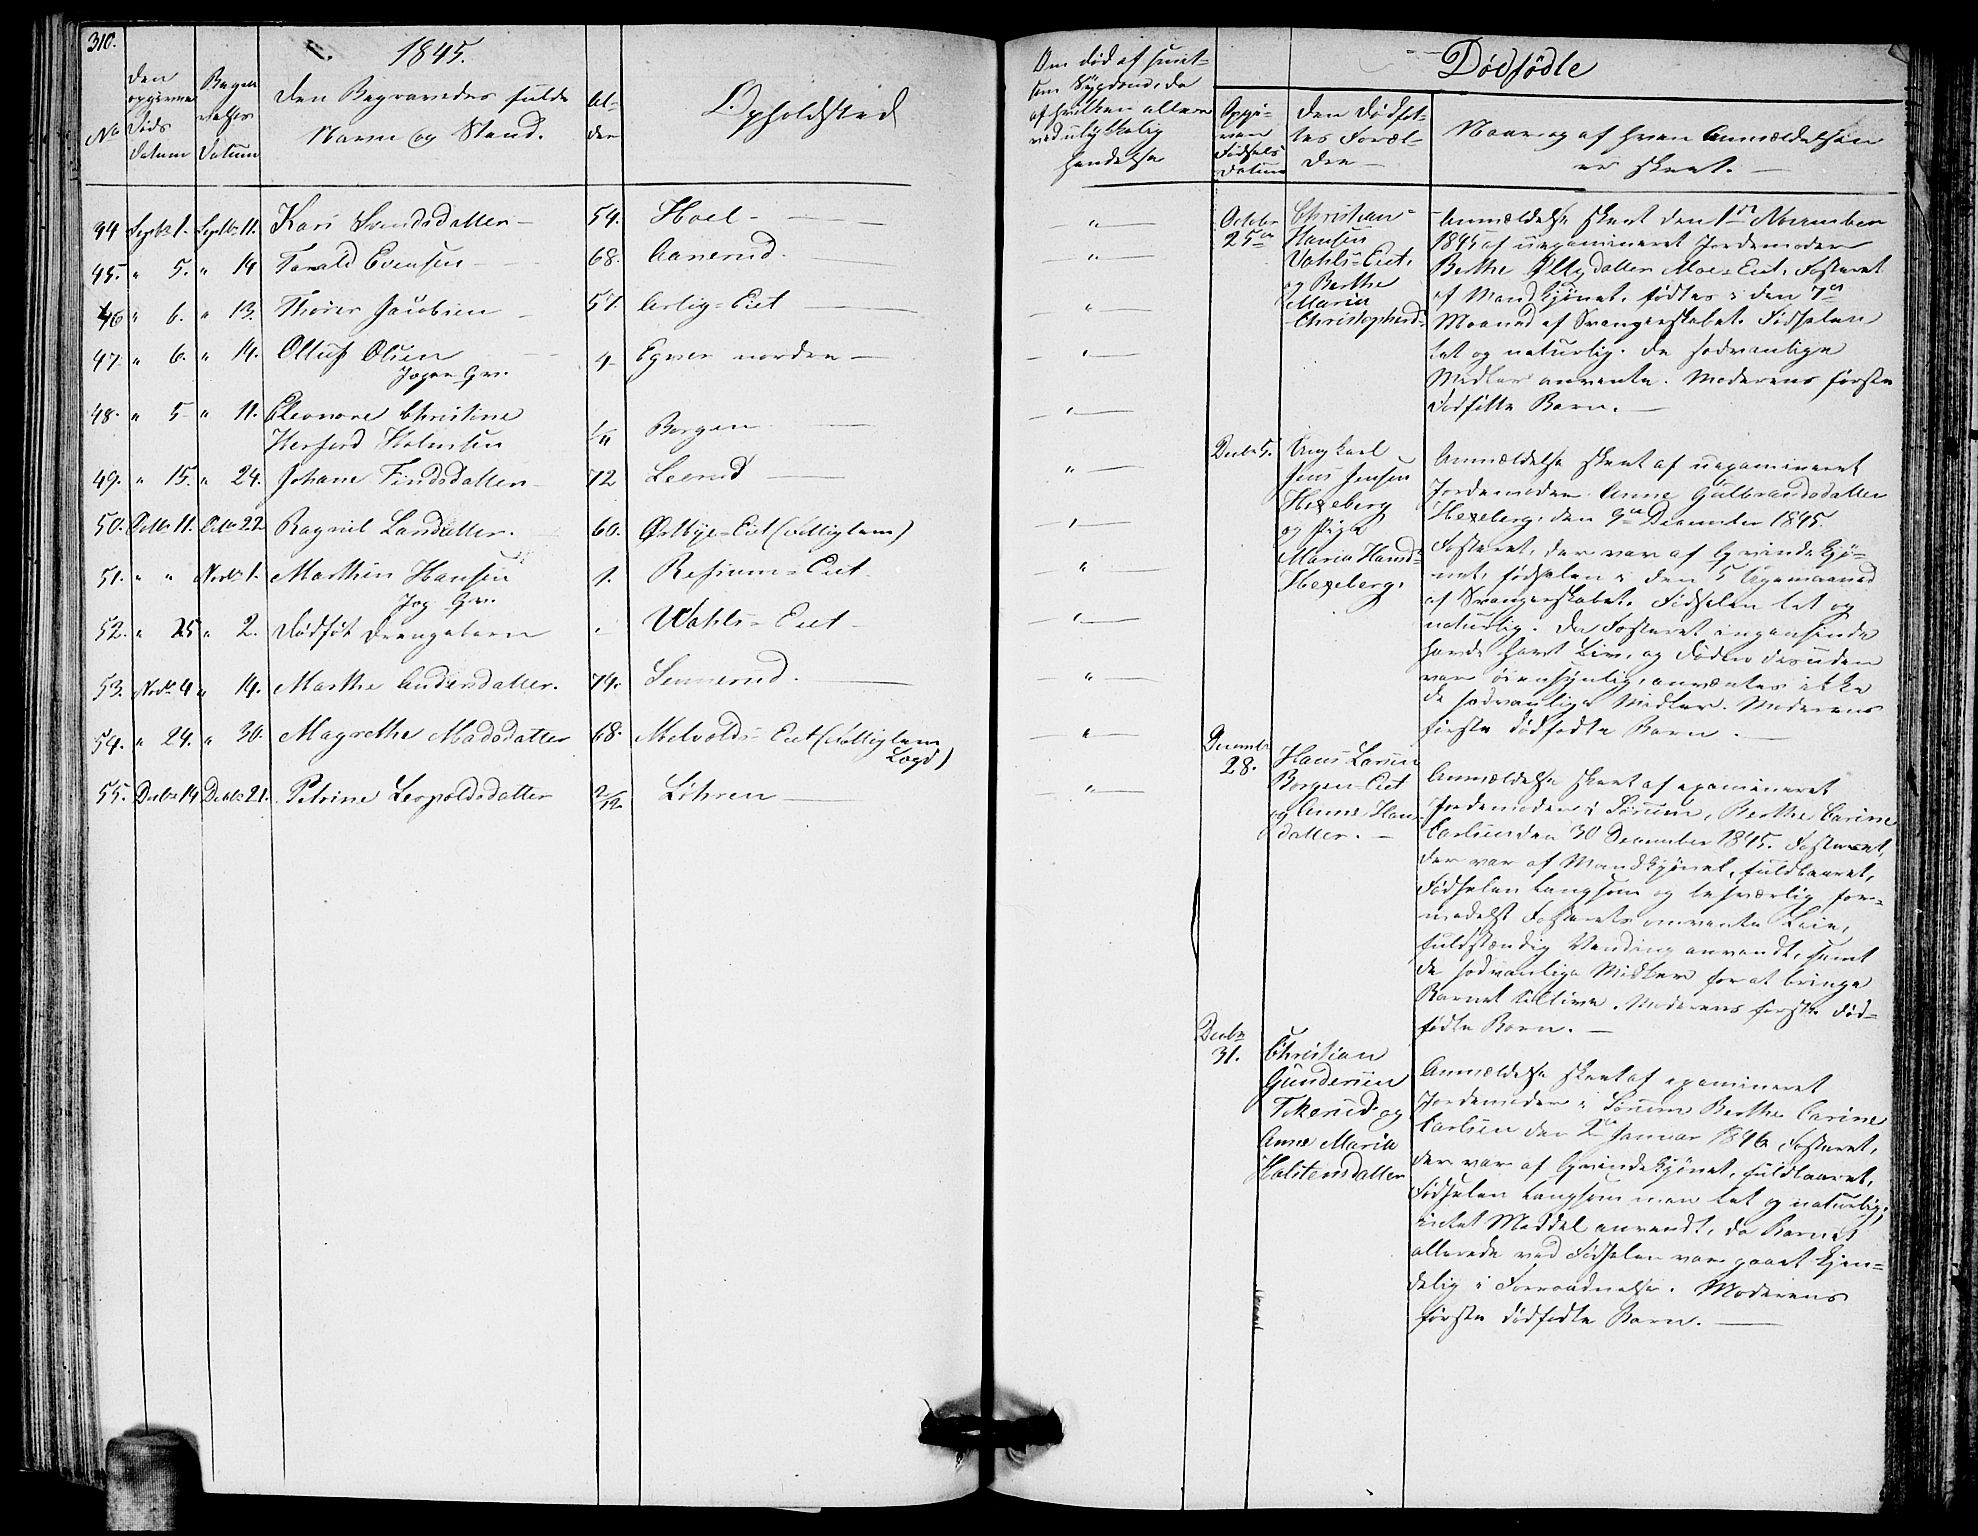 310.
1845.
No
Den opgivne Døds Datum
Begravelses Datum
Den Begravedes fulde
Navn og Stand.
Alder
Opholdsted
44 Septb. 1. Septb. 11. Kari Svendsdatter 54. Hoel
45. " 5. " 14 Tarald Evensen 68. Aanerud
46 " 6. " 13. Thorer Jacobsen 57. Eiet
47. " 6. " 14. Oluf Olsen 4 Egner nordre
48. " 5 " 11. Eleonore Christine
Herford Holmsen Borgen
49. " 15. " 24. Johane Findsdatter 72 Leerud
50. Octbr. 11. Octbr. 22 Ragnil Larsdatter 60. Østbye-Eiet (Fattiglem)
51. " " Novbr. 1. Marthin Hansen 1. Refsum-Eiet
52. " 25 " 2. Dødfødt Drengebarn Wahls-Eiet
53. Novbr. 4 " 14. Marthe Andersdatter. 74. Sennerud
54. " 24. " 30. Magrethe Madsdatter 68. Melvolds-Eiet (Fattiglem
Lægd)
55. Decbr. 14 Decbr. 21. Petrine Leopoldsdatter 2/12 Løhren
Om død af smit-
som Sygdom, da
af hvilken eller
ved ulykkelig
Hændelse
Dødfødte
Opgiven Fødsels Datum
Den Dødfød-
tes Foræl-
dre
Naar og af hvem Anmeldelsen
er skeet.
October
25de
Christian
Hansen
Vahls-Eiet,
og Berthe
Maria
Christophersd.
Anmeldelse skeet den 1ste November
1845 af uexamineret Jordemoder
Berthe datter Moe-Eiet. Fosteret
af Mandkjønnet, fødtes i den 7de
Maaned af Svangerskabet. Fødselen
let og naturlig. De sædvanlige
Midler anvendte. Moderens første
dødfødte Barn.
Decbr. 5.
Ungkarl
Jens Jensen
Hexeberg
og Pige
Maria Hansd.
Hexeberg.
Anmeldelse skeet af uexamineret
Jordemoder Anne Gulbrandsdatter
Hexeberg, den 9de December 1845.
Fosteret, der var af Qvindekjø-
net, fødselen i den 5 Ugemaaned
af Svangerskabet. Fødselen let og
naturlig. Da Fosteret ingensinde
havde havt Liv, og Døden desuden
var øiensynlig, anvendtes ikke
de sædvanlige Midler. Moderens
første dødfødte Barn.
Decembr.
28.
Hans Larsen
Borgen-Eiet
og Anne Hans-
datter.
Anmeldelse skeet af examineret
Jordemoder i Sørum, Berthe Carine
Carlsen den 30 December 1845. Fosteret,
der var af Mandkjønet, fuldbaaret,
Fødselen langsom og besværlig for-
medelst Fosterets omvendte Leie,
fuldstændig Vending anvendt, samt
de sædvanlige Midler for at bringe
Barnet tillive. Moderens første død-
fødte Barn.
Decbr.
31.
Christian
Gundersen
Tikerud og
Anne Maria
Halstensdatter
Anmeldelse skeet af examineret
Jordemoder i Sørum Berthe Carine
Carlsen den 2de Januar 1846. Fosteret,
der var af Qvindekjønet, fuldbaaret,
Fødselen langsom men let og naturlig;
intet Middel anvendt, da Barnet
allerede ved Fødselen var gaaet kjen-
delig i Forraadnelse. Moderens
første dødfødte Barn.